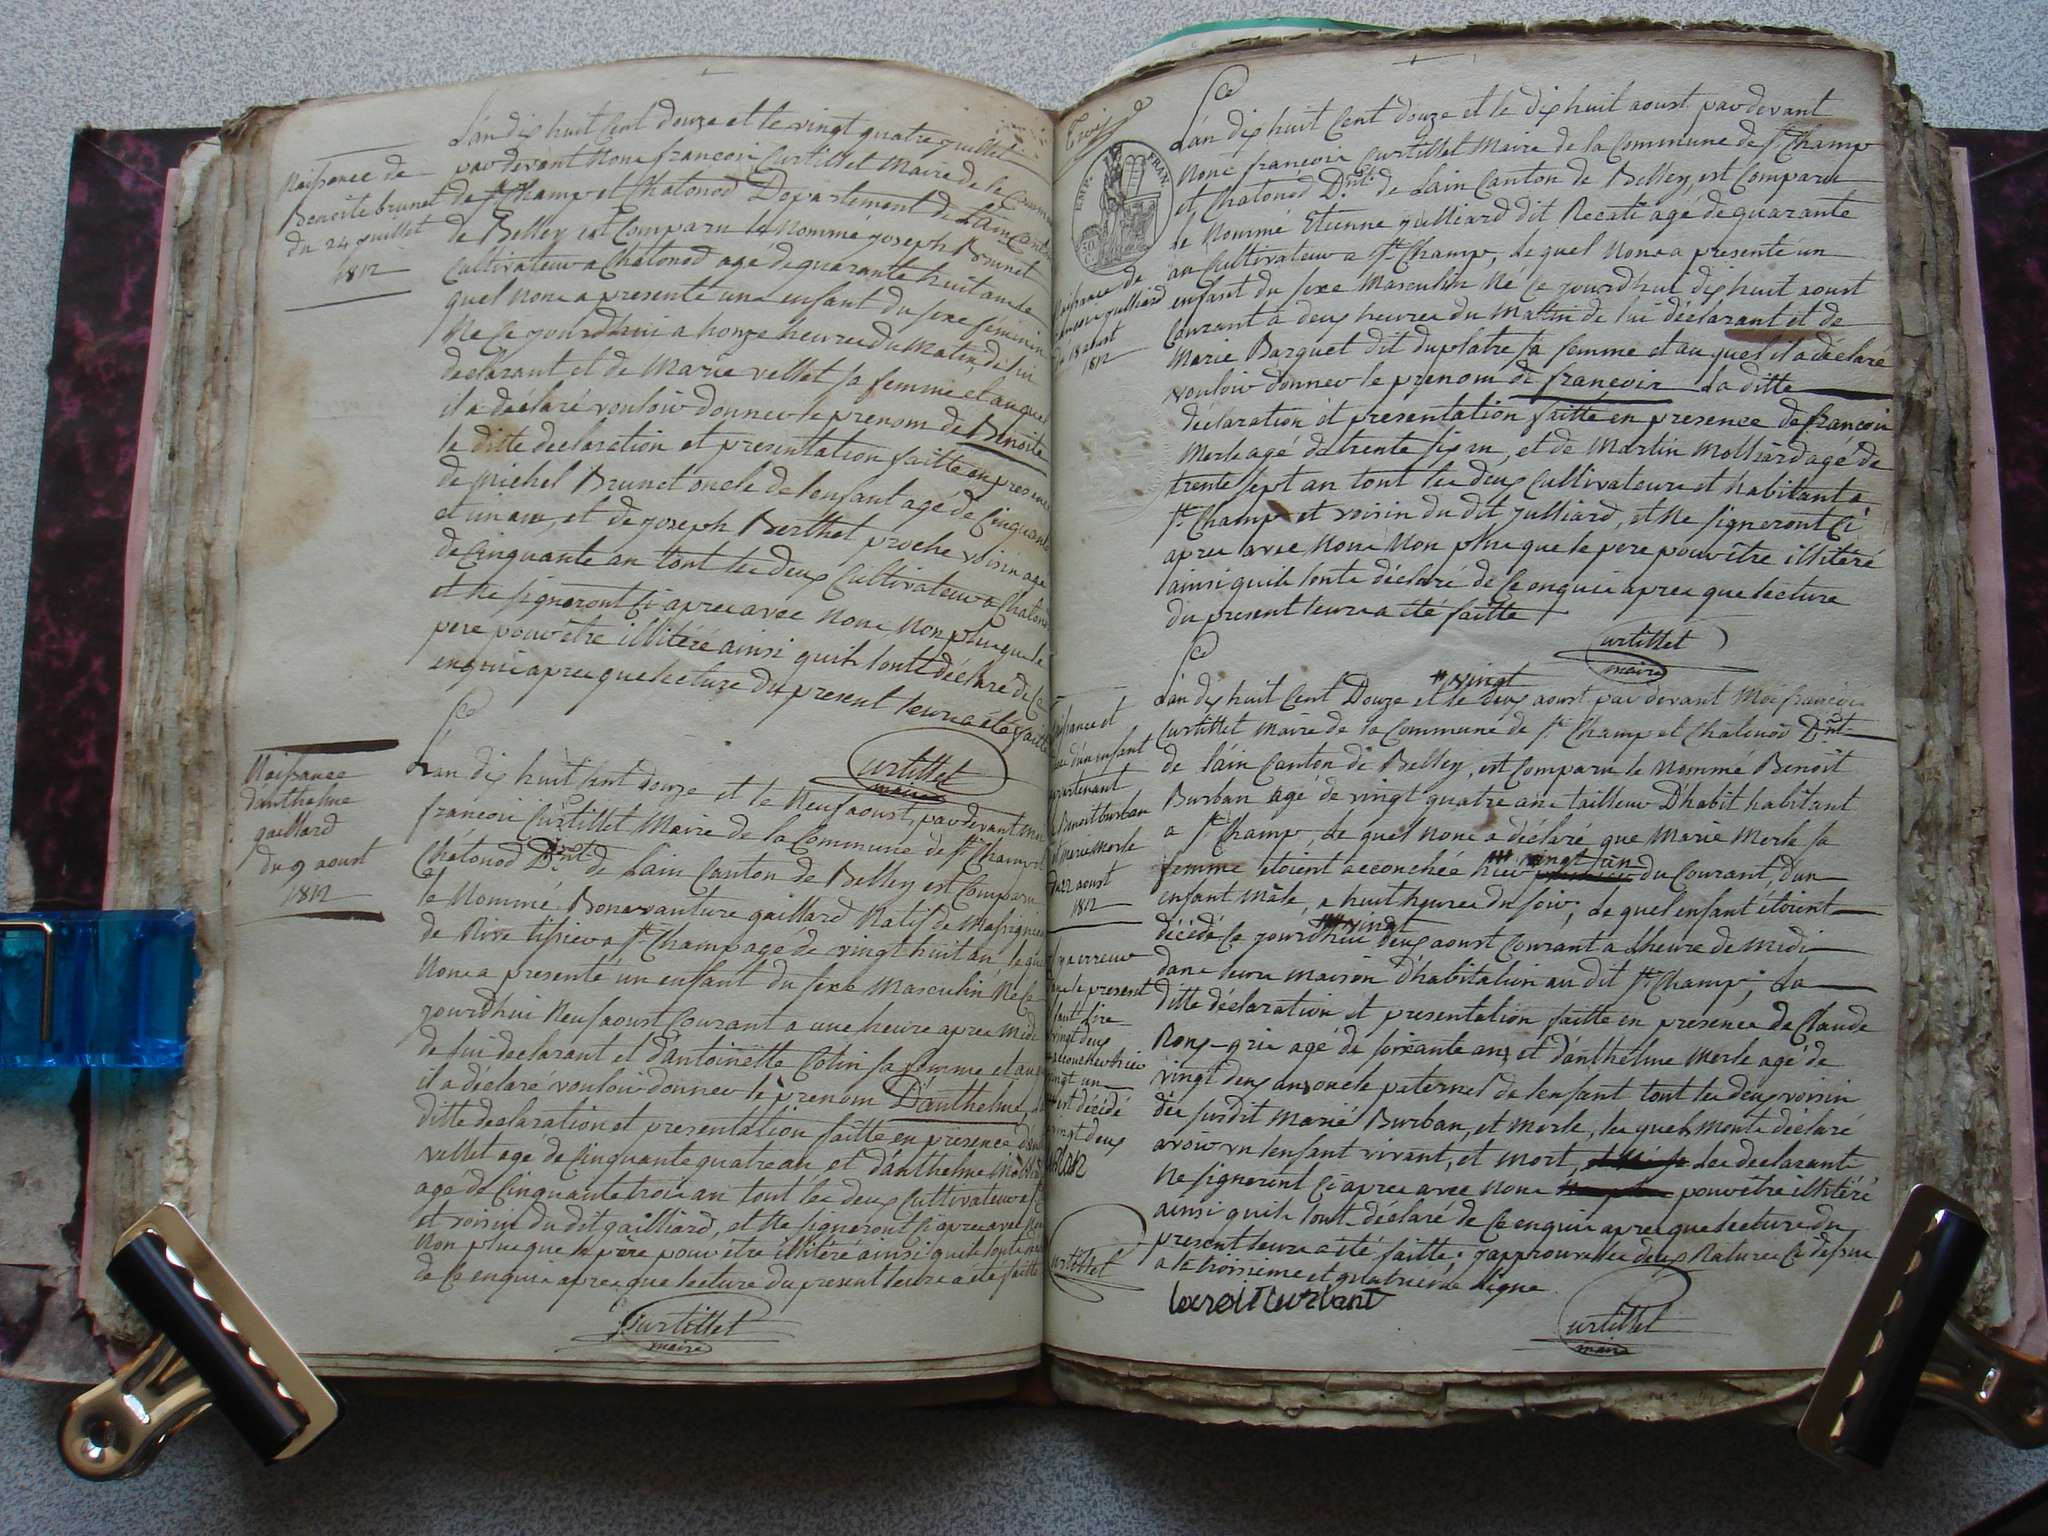 Naissance de
Benoite brunet
du 24 juillet
1812
L'an dix huit Cent douze et le vingt quatre juillet
par devant Nous francois Curtillet Maire de la Commune
de St Champ et Chatonod Departement de Lain Canton
de Belley est Comparu le Nomme joseph Brunet
Cultivateur a Chatonod age de quarante huit an le
quel nous a presenté une enfant du sexe féminin
Né Ce jourdhui a honze heures du Matin, de lui
declarant et de Marie vellet sa femme et auquel
il a déclaré vouloir donner le prenom de Benoite
la ditte declaration et presentation faitte en presence
de Michel Brunet oncle de l'enfant agé de Cinquante
et un ans, et de joseph Berthet proche voisin age
de Cinquante an tout les deux Cultivateurs a Chatonod
et Ne signeront Ci apres avec Nous Non plus que le
pere pour être illitéré ainsi quils l'ont déclaré de Ce
enquis apres que lecture du present leurs a été faitte
Curtillet
maire
Naissance
d'anthelme
gaillard
du 9 aoust
1812
L'an dix huit Cent douze et le Neuf aoust, par devant Nous
francois Curtillet Maire de la Commune de St Champ et
Chatonod Dmt de Lain Canton de Belley est Comparu
le Nommé Bonavanture gaillard Natif de Massignieu
de Rive tissier a St Champ age de vingt huit an le quel
Nous a presenté un enfant du sexe Masculin Né Ce
jourdhui Neuf aoust Courant a une heure apres Midi
de lui declarant et d'antoinette Colin sa femme et auquel
il a déclaré vouloir donner le prenom D'anthelme, La
ditte declaration et presentation faitte en presence
vellet agé de Cinquante quatre an et d'anthelme
age de Cinquante trois an tout les deux Cultivateurs a St
et voisin du dit gailliard, et Ne signeront Ci apres avec Nous
Non plus que le père pour être illitéré ainsi quils l'ont
de Ce enquis apres que lecture du present leurs a été faitte
Curtillet
maire
EMP. FRAN.
Naissance de
francois julliard
du 18 aoust
1812
L'an dix huit Cent douze et le dix huit aoust par devant
Nous francois Curtillet Maire de la Commune de St Champ
et Chatonod Dmt de Lain Canton de Belley, est Comparu
le Nommé Etienne julliard dit Recati agé de quarante
an Cultivateur a St Champ, le quel Nous a presente un
enfant du sexe Masculin Né Ce jourdhui dix huit aoust
Courant a deux heures du Mattin de lui déclarant et de
Marie Barquet dit duplatre sa femme et au quel il a déclaré
vouloir donner le prenom de francois La ditte
déclaration et presentation faitte en presence de francois
Merle agé de trente six an, et de Martin Molliard agé de
trente sept an tout les deux Cultivateurs et habitant a
St Champ et voisin du dit julliard, et Ne signeront Ci
apres avec Nous Non plus que le pere pour être illitéré
ainsi quils l'ont déclaré de Ce enquis apres que lecture
du present leurs a été faitte
Curtillet
maire
Naissance et
d'un enfant
appartenant
a Benoit burban
et Marie Merle
du 22 aoust
1812
vingt
L'an dix huit Cent Douze et le deux aoust par devant Moi francois
Curtillet Maire de la Commune de St Champ et Chatonod Dmt
de Lain Canton de Belley, est Comparu le Nommé Benoit
Burban agé de vingt quatre ans tailleur D'habit habitant
a St Champ, le quel Nous a déclaré que Marie Merle sa
vingt un
femme étoient accouchée hier du Courant, d'un
enfant Mâle, a huit heures du soir, le quel enfant étoient
vingt
décédé Ce jourdhui deux aoust Courant a L'heure de Midi
dans leurs maison D'habitation au dit St Champ; La
ditte déclaration et presentation faitte en presence de Claude
agé de soixante ans et d'anthelme Merle agé de
vingt deux ans oncle paternel de l'enfant tout les deux voisin
des susdit Marié Burban, et Merle, les quels Mont déclaré
avoir vu l'enfant vivant, et mort, Les declarants
Ne signeront Ci apres avec Nous pour être illitéré
ainsi quils l'ont déclaré de Ce enquis apres que lecture du
present leurs a été faitte; j'approuve les deux Ratures Ci dessus
a la troisieme et quatrieme Ligne.
erreur
le present
faut lire
vingt deux
hier
vingt un
est décédé
vingt deux
Curtillet
Curtillet
maire